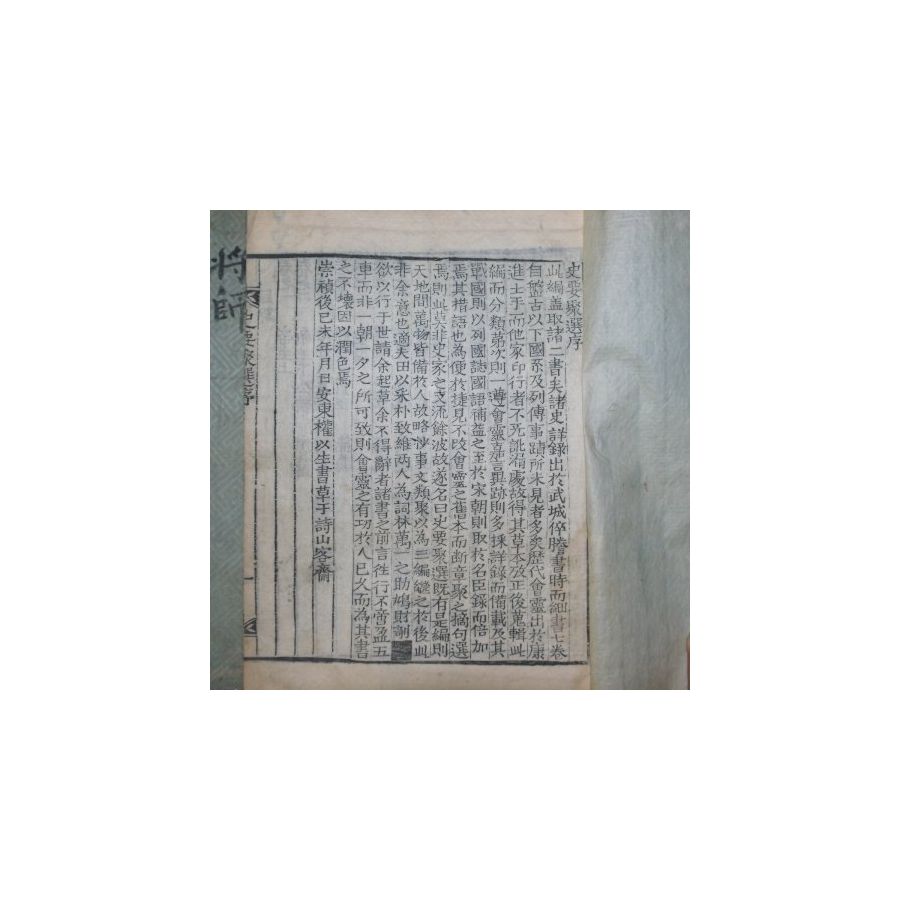 史要聚選序
此編盖取諸二書矣諸史詳錄出於武城倅謄書時而細書七卷
自盤古以下國系及列傳事蹟所未見者多矣歷代會靈出於康
進士手而他家印行者不无訛漏處故得其草本攷正後蒐輯此
編而分類第次則一遵會靈嘉言異跡則多採詳錄而備載及其
戰國則以列國誌國語補益之至於宋朝則取於名臣錄而倍加
焉其措語也為便於捷見不改會靈之舊本而断章聚之摘句選
焉則此莫非史家之支流餘波故遂名曰史要聚選既有是編則
天地間萬物皆備於人故略抄事文類聚以為三編継之於後此
非余意也適夫田以采朴致維两人為詞林萬一之助鳩財剞
欲以行于世請余起草余不得辭者諸書之前言徃行不啻盈五
車而非一朝一夕之所可致則會靈之有功於人已久而為其書
之不壞因以潤色焉
崇禎後己未年月日安東權以生書草于詩山客齋
史要聚選序
一
将師